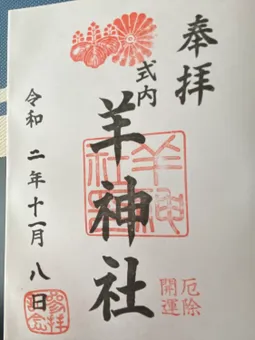 奉拝
式内
羊神社
厄除
開運
令和二年十一月八日